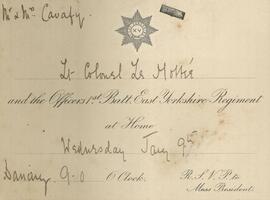 Mr & Mrs Cavafy.
XV
Lt Colonel Le Mottée
and the Officers 1st Batt. East Yorkshire Regiment
at Home
Wednesday Jany 9th
Dancing 9-0 O'Clock.
R.S.V.P. to
Mess President.